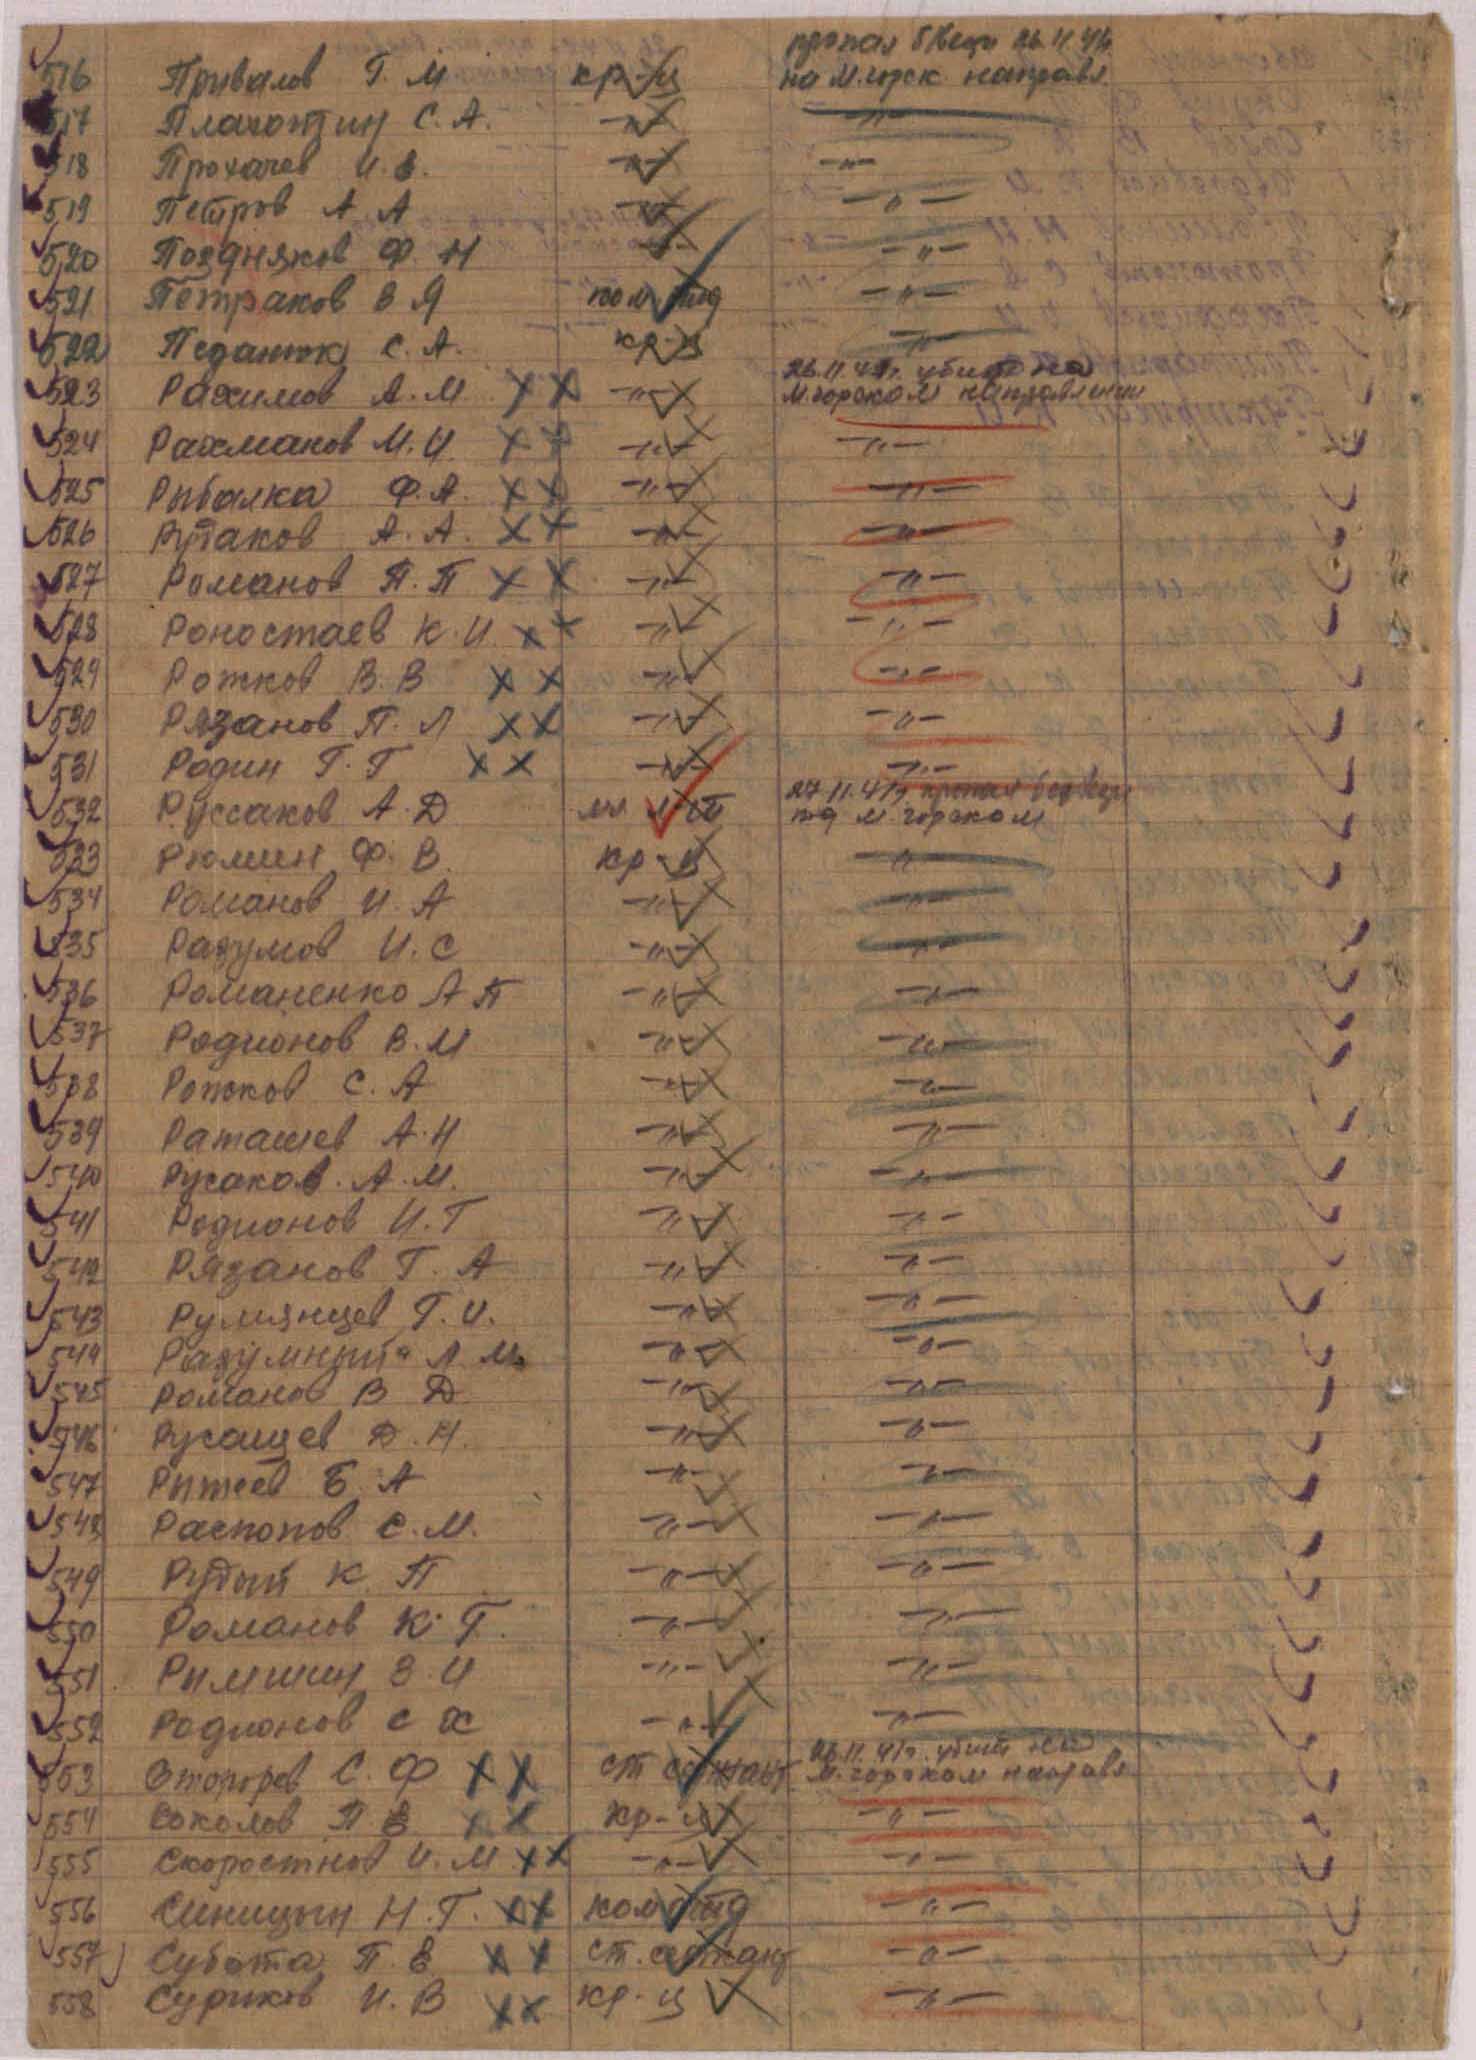 516 Привалов Г. М кр-ц пропал б/вещи 26.11.41г. на М.горск. направл.
517 Плахотин С. А. -"- -"-
518 Прохачев И. В. -"- -"-
519 Петров А А -"- -"-
520 Поздняков Ф. Н -"- -"-
521 Петраков В Я ком отд -"-
522 Педанюк С. А. кр-ц -"-
523 Рахимов А. М ХХ -"- 26.11.41г. убит на М.горском направлении
524 Рахманов М. И. ХХ -"- -"-
525 Рыбалка Ф. А. ХХ -"- -"-
526 Рутаков А. А. ХХ -"- -"-
527 Романов П. П ХХ -"- -"-
528 Роностаев К. И. ХХ -"- -"-
529 Рожков В. В ХХ -"- -"-
530 Рязанов П. Л ХХ -"- -"-
531 Родин Г. Г ХХ -"- -"-
532 Руссаков А. Д мл л-т 27.11.41г. пропал без вещи под М. горском
533 Рюмин Ф. В. кр-ц -"-
534 Романов И. А -"- -"-
535 Разумов И. С -"- -"-
536 Романенко А П -"- -"-
537 Родионов В. М -"- -"-
538 Рожков С. А -"- -"-
539 Раташев А. Н -"- -"-
540 Русаков. А. М. -"- -"-
541 Родионов И. Г -"- -"-
542 Рязанов Г. А -"- -"-
543 Румянцев Г. И. -"- -"-
544 Разумный Л М. -"- -"-
545 Романов В Д -"- -"-
546 Русанцев Д. Н. -"- -"-
547 Рыжеев Б. А -"- -"-
548 Распопов С. М. -"- -"-
549 Рудый К. П -"- -"-
550 Романов К. Г. -"- -"-
551 Рымшин З. И -"- -"-
552 Родионов С Х -"- -"-
553 С. Ф ХХ ст сержант 26.11.41г. убит на М. горском направл
554 Соколов П В ХХ кр-ц -"-
555 Скоростнов И. М ХХ -"- -"-
556 Синицын Н. Г. ХХ ком отд -"-
557 Субота П. Е ХХ ст. сержант -"-
558 Суриков И. В ХХ кр-ц -"-